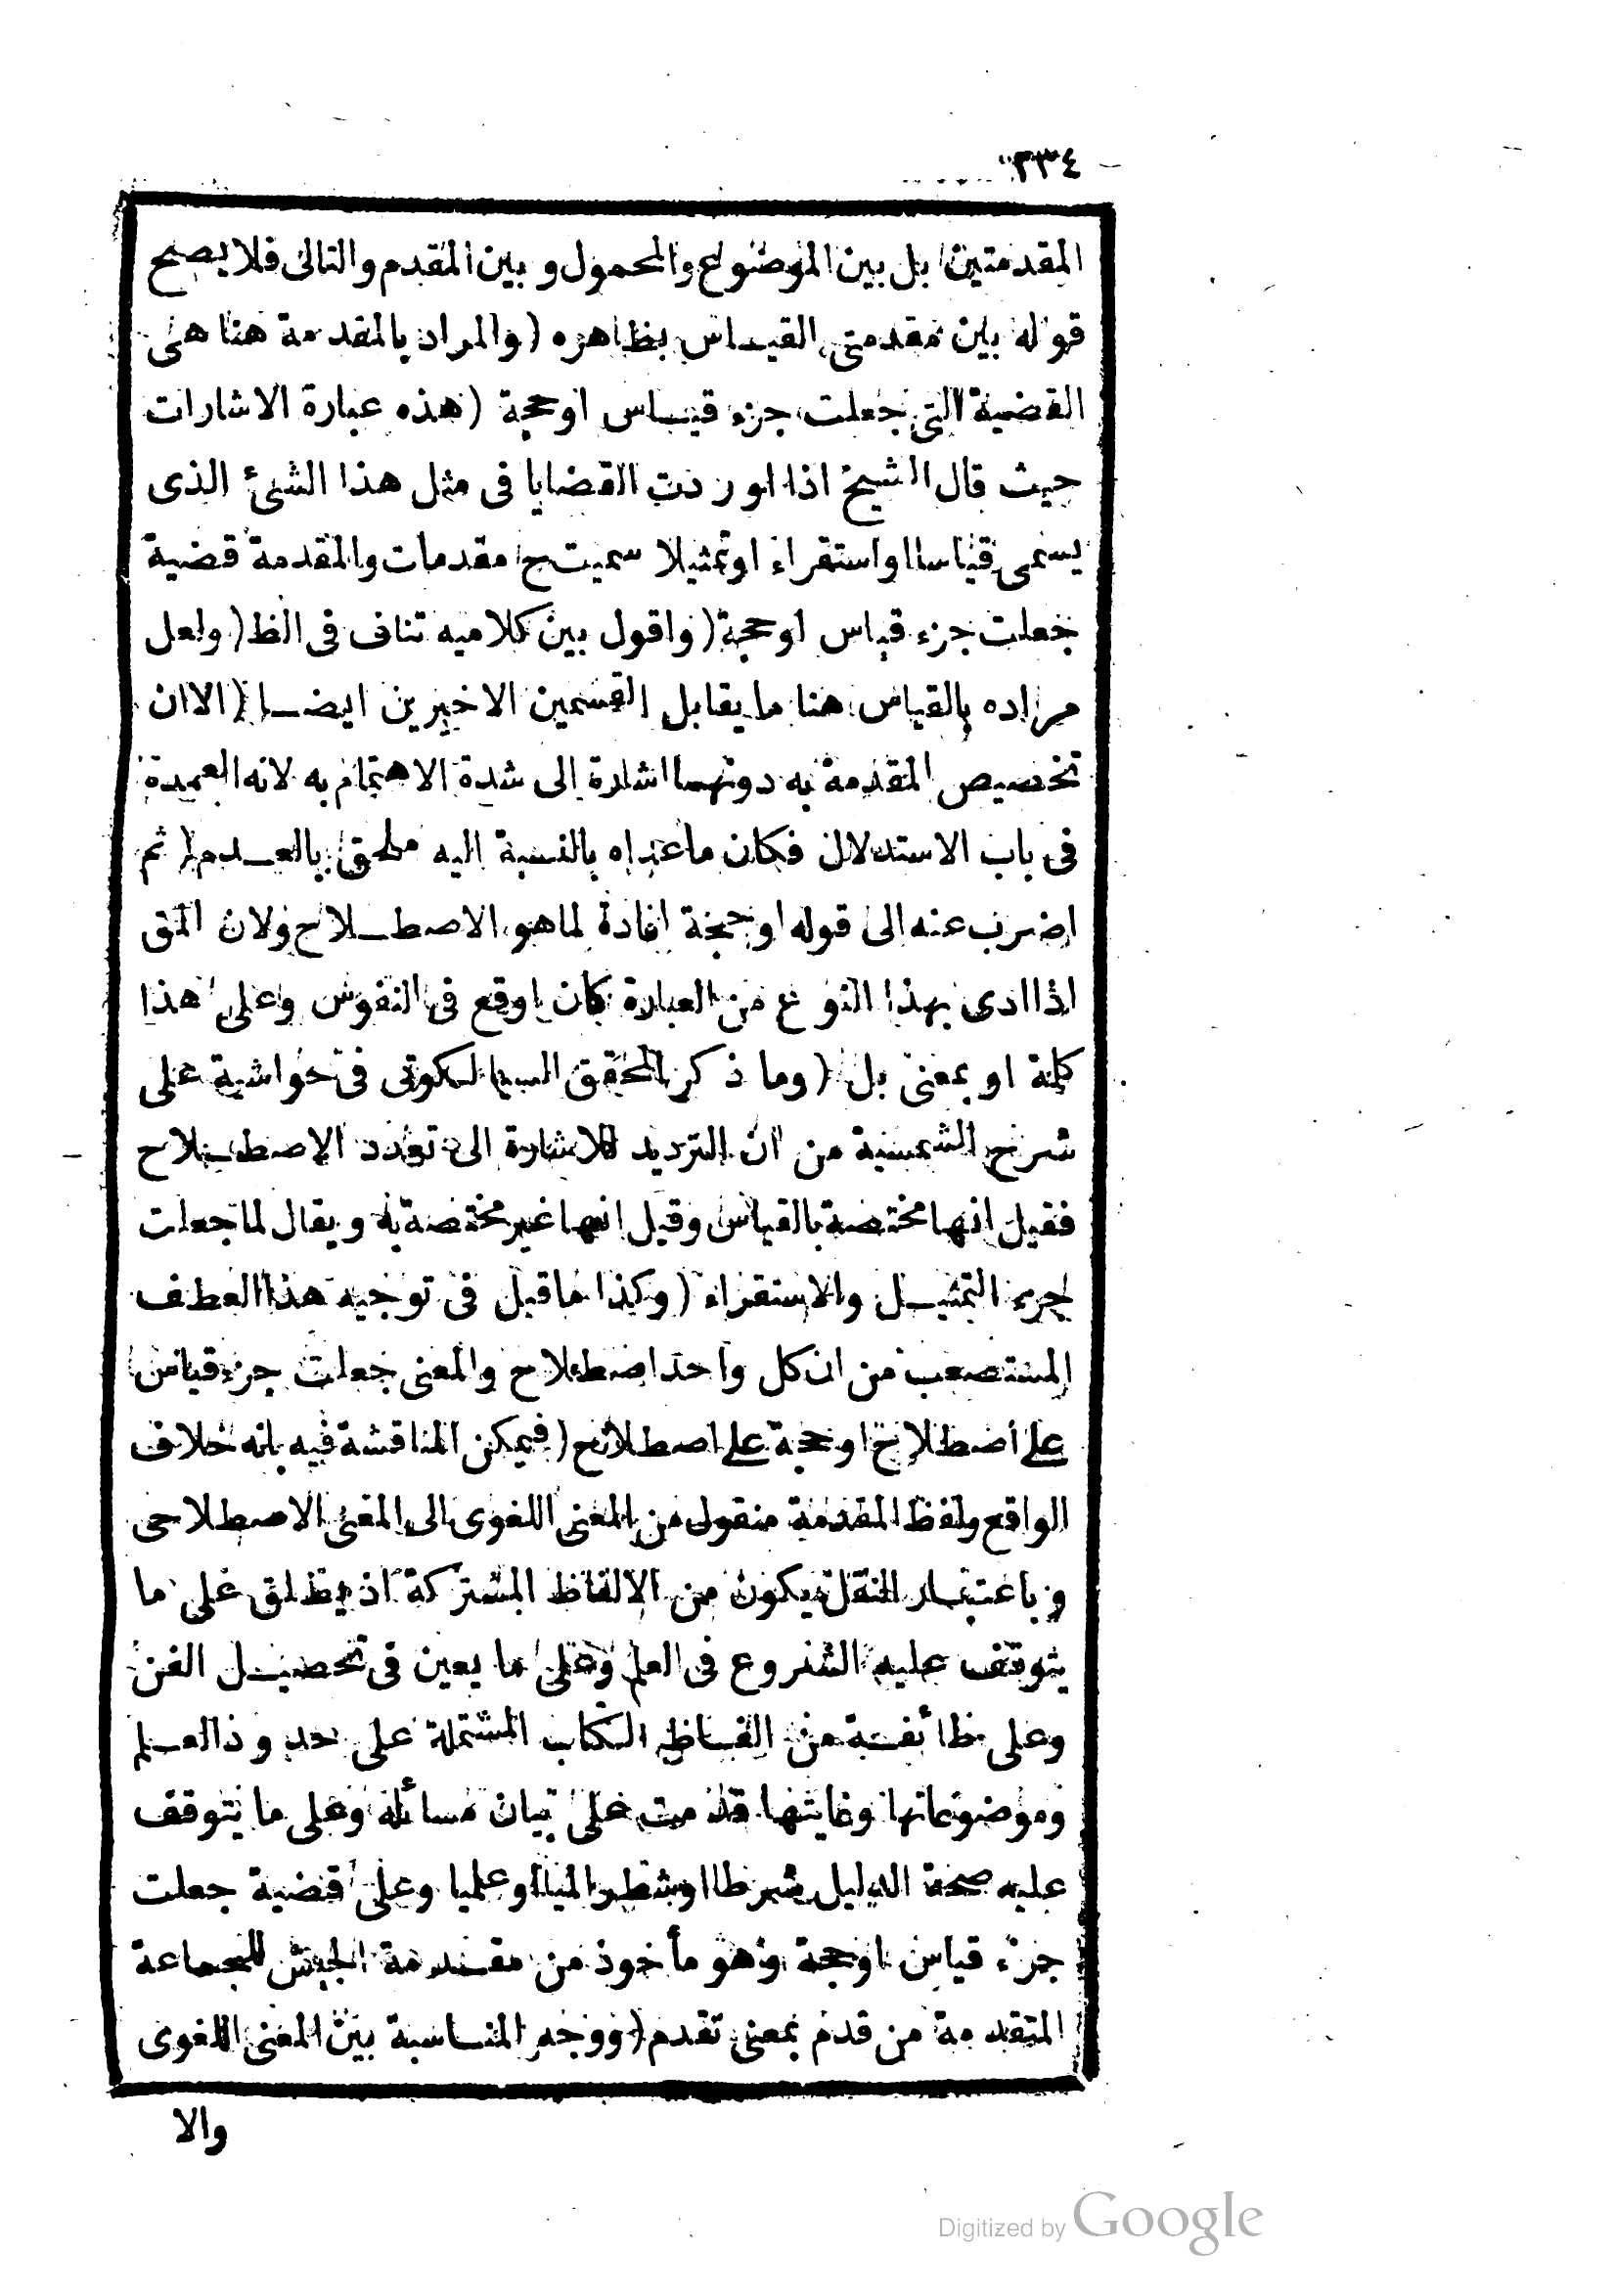 ٣٣٤
المقدمتين بل بين الموضوع والمحمول و بين المقدم والتالى فلا يصح
قوله بين مقدمتى القياس بظاهره (والمراد بالمقدمة هنا هى
القضية التى جعلت جزء قياس اوحجة (هذه عبارة الاشارات
حيث قال الشيخ اذا اوردت القضايا فى مثل هذا الشئ الذى
يسمى قياسا او استقراء او تمثيلا سميت ح مقدمات والمقدمة قضية
جعلت جزء قياس اوحجة (واقول بين كلاميه تناف فى الظ (ولعل
مراده بالقياس هنا ما يقابل القسمين الاخيرين ايضا (الا ان
تخصيص المقدمة به دونهما اشارة الى شدة الاهتمام به لانه العمدة
فى باب الاستدلال فكان ماعداه بالنسبة اليه ملحق بالعدم (ثم
اضرب عنه الى قوله اوحجة افادة لما هو الاصطلاح ولان المق
اذا ادى بهذا النوع من العبارة كان اوقع فى النفوس وعلى هذا
كلمة او بمعنى بل (وما ذكر المحقق السيالكوتى فى حواشيه على
شرح الشمسية من ان الترديد للاشارة الى تعدد الاصطلاح
فقيل انها مختصة بالقياس وقيل انها غير مختصة به ويقال لما جعلت
جزء التمثيل والاستقراء (وكذا ما قيل فى توجيه هذا العطف
المستصعب من ان كل واحد اصطلاح والمعنى جعلت جزء قياس
على اصطلاح اوحجة على اصطلاح (فيمكن المناقشة فيه بانه خلاف
الواقع ولفظ المقدمة منقول من المعنى اللغوى الى المعنى الاصطلاحى
و باعتبار النقل يكون من الالفاظ المشتركة اذ يطلق على ما
يتوقف عليه الشروع فى العلم وعلى ما يعين فى تحصيل الفن
وعلى طائفة من الفاظ الكتاب المشتملة على حدود العلم
وموضوعاتها وغايتها قدمت على بيان مسائله وعلى ما يتوقف
عليه صحة الدليل شرطا اوشطرا لميا او علميا وعلى قضية جعلت
جزء قياس اوحجة وهو مأخوذ من مقدمة الجيش للجماعة
المتقدمة من قدم بمعنى تقدم (ووجه المناسبة بين المعنى اللغوى
والا
Digitized by Google